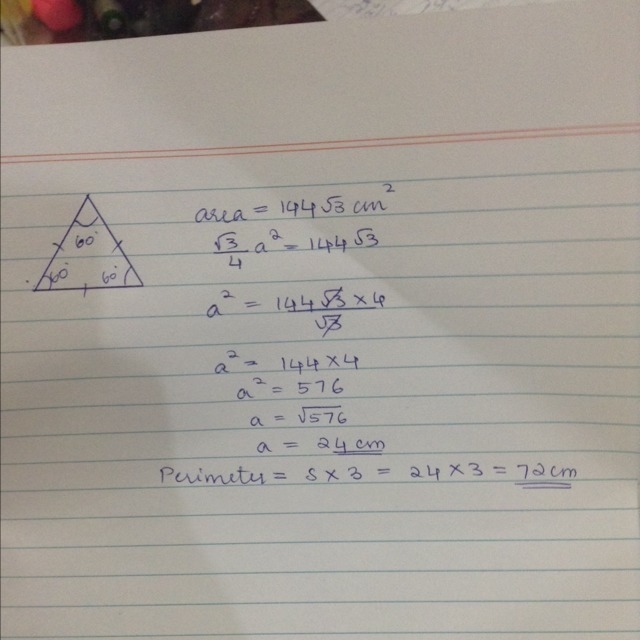 60°
60° 60°
area = 144√3 cm²
√3/4 a² = 144√3
a² = 144√3 × 4/√3
a² = 144 × 4
a² = 576
a = √576
a = 24 cm
Perimeter = s × 3 = 24 × 3 = 72 cm